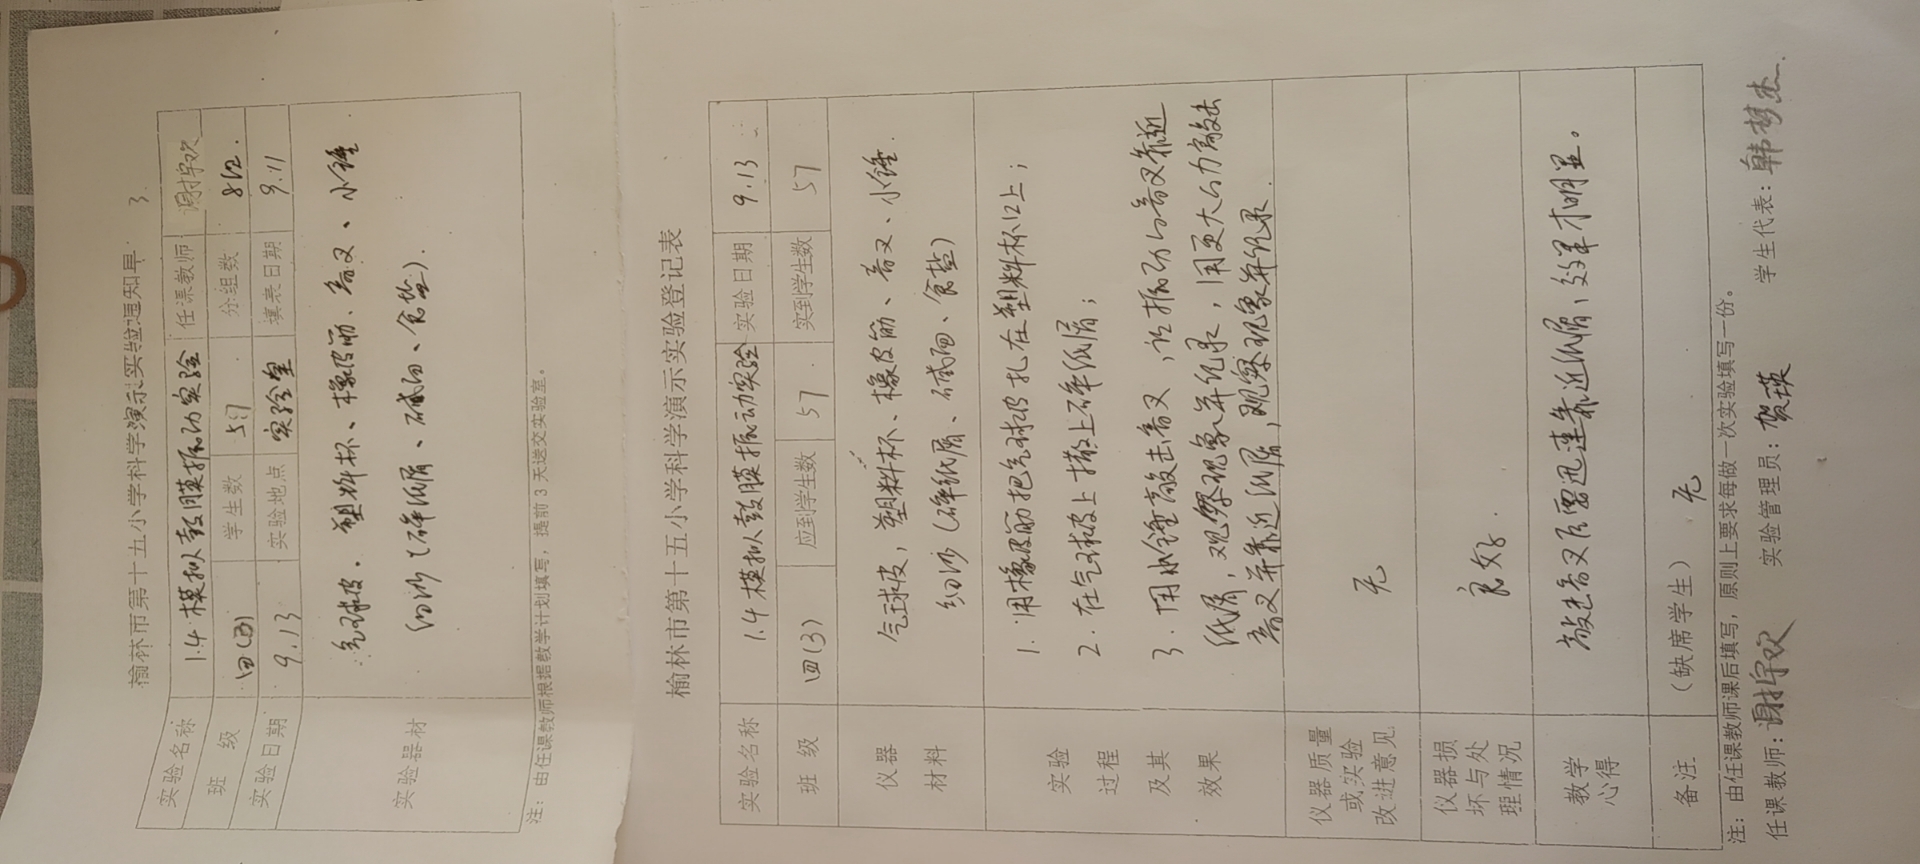 榆林市第十五小学科学演示实验通知单 3
实验名称 1.4模拟鼓膜振动实验 任课教师 谢宇欢
班 级 四(3) 学生数 57 分组数 8组.
实验日期 9.13 实验地点 实验室 填表日期 9.11
实验器材
气球皮、塑料杯、橡皮筋、音叉、小锤
细沙(碎纸屑、碱面、食盐).
注：由任课教师根据教学计划填写，提前 3 天送交实验室。
榆林市第十五小学科学演示实验登记表
实验名称 1.4模拟鼓膜振动实验 实验日期 9.13
班 级 四(3) 应到学生数 57 实到学生数 57
仪器
材料
气球皮，塑料杯、橡皮筋、音叉、小锤
细沙(碎纸屑、碱面、食盐)
实验
过程
及其
效果
1. 用橡皮筋把气球皮扎在塑料杯口上；
2. 在气球皮上撒上碎纸屑；
3. 用小锤敲击音叉，让振动的音叉靠近
纸屑，观察现象并记录，用更大的力敲击
音叉并靠近纸屑，观察现象并记录.
仪器质量
或实验
改进意见
无
仪器损
坏与处
理情况
良好.
教学
心得
敲击音叉后需迅速靠近纸屑，效果才明显。
备注 (缺席学生) 无
注：由任课教师课后填写，原则上要求每做一次实验填写一份。
任课教师：谢宇欢 实验管理员：贺瑛 学生代表：韩梦杰.